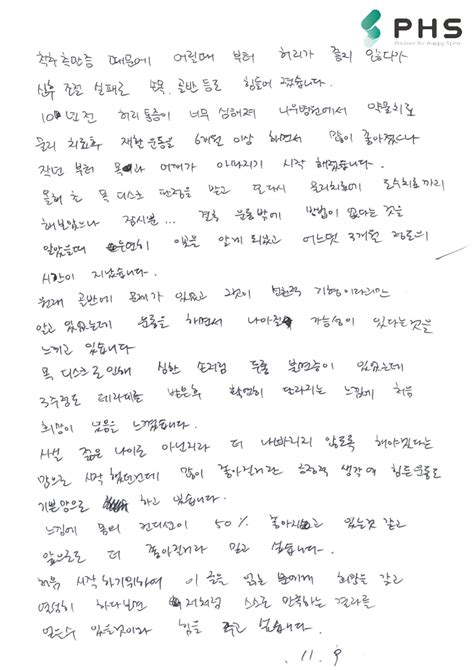 PHS
Pioneer for Happy Spine
척추측만증 때문에 어린때 부터 허리가 좋지 않다가
산후 조리 실패로 손목, 골반 등로 힘들어 졌습니다.
10년전 허리통증이 너무 심해져 나우병원에서 약물치료
물리 치료후 재활운동을 6개월 이상 하면서 많이 좋아졌으나
작년 부터 목과 어깨가 아파지기 시작 했습니다.
올해 초 목 디스크 판정을 받고 또다시 물리치료에 도수치료까지
해보았으나 잠시뿐... 결국 운동밖에 방법이 없다는 것을
알았을때 우연히 이곳을 알게 되었고 어느덧 3개월 정도의
시간이 지났습니다.
원래 골반에 문제가 있었고 그것이 선천적 기형이라고만
알고 있었는데 운동을 하면서 나아질 가능성이 있다는것을
느끼고 있습니다
목 디스크로 인해 심한 손저림 두통 불면증이 있었는데
3주정도 테라피를 받은후 확연히 달라지는 느낌에 처음
희망이 있음을 느꼈습니다.
사실 젊은 나이로 아닌지라 더 나빠지지 않도록 해야겠다는
맘으로 시작했었던데 많이 좋아진거라 긍정적 생각에 힘든운동도
기쁜맘으로 하고 있습니다.
느낌에 몸의 컨디션이 50% 좋아지고 있는것 같고
앞으로도 더 좋아진거라 믿고 싶습니다.
처음 시작하기위하여 이 글을 읽는 분에게 희망을 갖고
열심히 하다보면 저처럼 스스로 만족하는 결과를
얻을수 있을것이라 힘을 주고 싶습니다.
. 11. 9